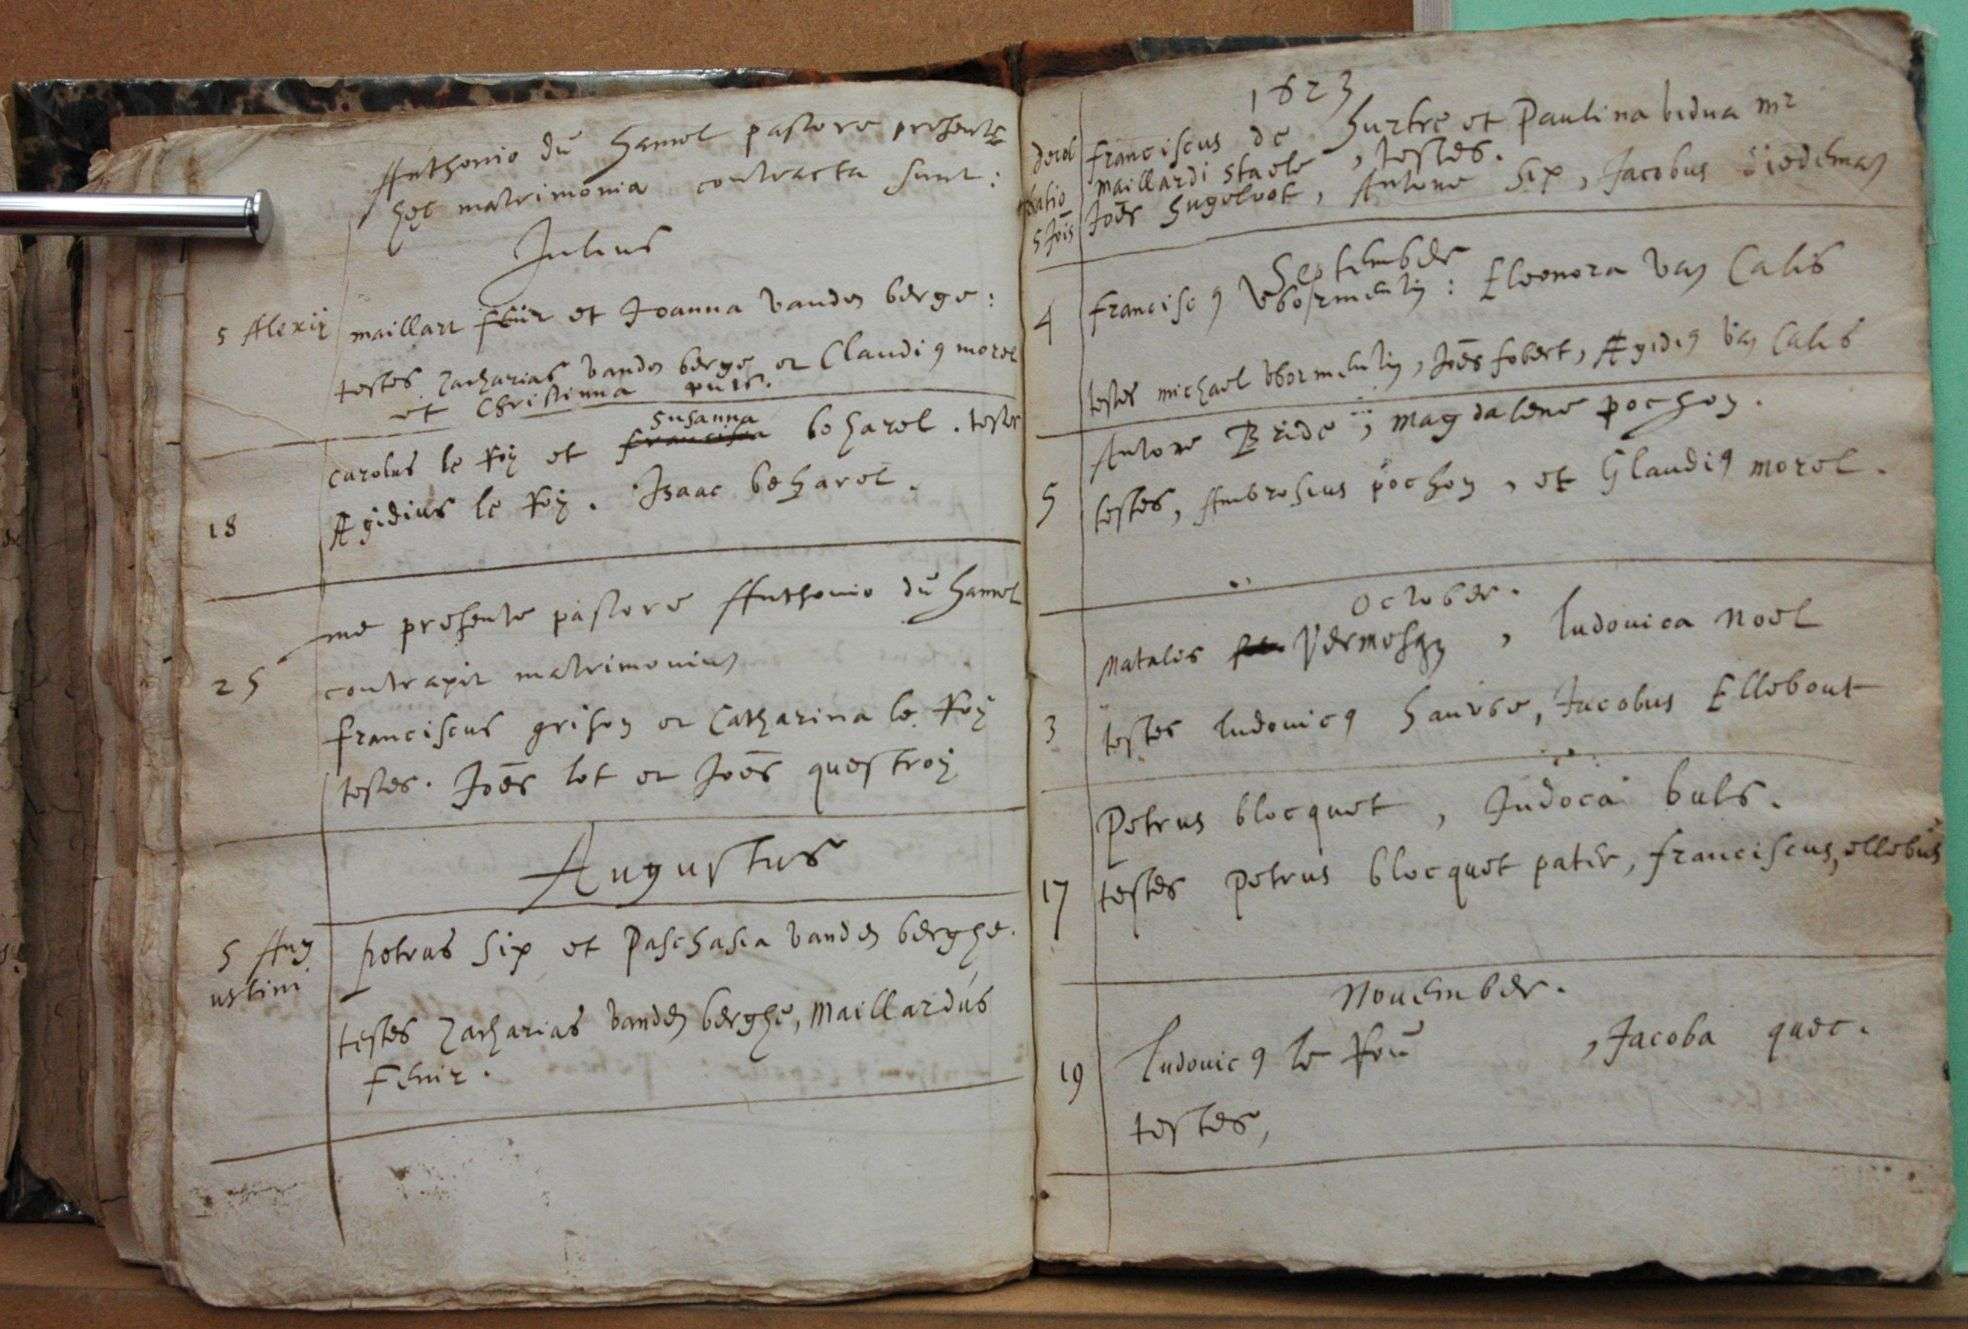 Anthonio du Hamel pastore presente
hec matrimonia contracta sunt:
Julius
S Alexii maillart feur et Joanna vanden berge:
testes zacharias vanden berge et Claudi9 morel
et Christinna
susanna
carolus le Roy et francisca beharel . testes
18 Ægidius le Roy . Isaac beharel .
me presente pastore Anthonio du Hamel
25 contraxit matrimonium
franciscus grison et Catharina le Roy
testes . Joēs lot et Joēs questroy
Augustus
S Aug petrus Six et Paschasia vanden berghe .
ustini
testes zacharias vanden berghe, Maillardus
Feuir .
1623
decol franciscus de Hurtre et Paulina vidua mr
latio maillardi staele , testes .
S Jois Joēs Hugeloot , Antone Six , Jacobus
September
4 francisc9 : Eleonora van Calis
testes michael , Joēs fobert , Ægidi9 van Calis
Antone Bride , magdalene pochon .
5 testes , Ambrosius pochon , et Glaudi9 morel .
October .
Natalis Vermesch , ludovica Noel
3 testes ludovic9 , Jacobus Ellebout
Petrus blocquet , Judoca buls .
17 testes Petrus blocquet pater , franciscus ellebut
November .
19 ludovic9 le Rou , Jacoba quec .
testes ,